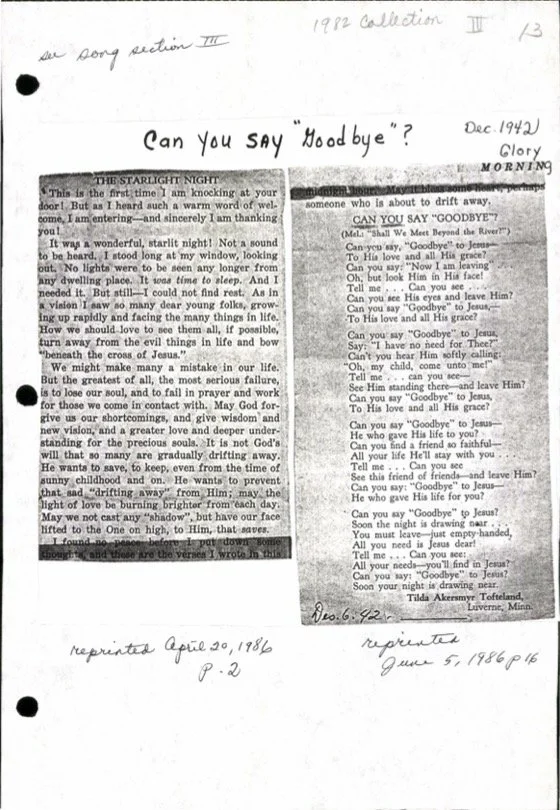 1982 Collection III 13
see song section III
Can You SAY "Goodbye"?
Dec. 1942
Glory
MORNING
THE STARLIGHT NIGHT
"This is the first time I am knocking at your
door! But as I heard such a warm word of wel-
come, I am entering—and sincerely I am thanking
you!
It was a wonderful, starlit night! Not a sound
to be heard. I stood long at my window, looking
out. No lights were to be seen any longer from
any dwelling place. It was time to sleep. And I
needed it. But still—I could not find rest. As in
a vision I saw so many dear young folks, grow-
ing up rapidly and facing the many things in life.
How we should love to see them all, if possible,
turn away from the evil things in life and bow
"beneath the cross of Jesus."
We might make many a mistake in our life.
But the greatest of all, the most serious failure,
is to lose our soul, and to fail in prayer and work
for those we come in contact with. May God for-
give us our shortcomings, and give wisdom and
new vision, and a greater love and deeper under-
standing for the precious souls. It is not God's
will that so many are gradually drifting away.
He wants to save, to keep, even from the time of
sunny childhood and on. He wants to prevent
that sad "drifting away" from Him; may the
light of love be burning brighter from each day.
May we not cast any "shadow", but have our face
lifted to the One on high, to Him, that saves.
I found no peace before I put down some
thoughts, and these are the verses I wrote in this
midnight hour. May it bless some heart, perhaps
someone who is about to drift away.
CAN YOU SAY "GOODBYE"?
(Mel.: "Shall We Meet Beyond the River?")
Can you say, "Goodbye" to Jesus—
To His love and all His grace?
Can you say: "Now I am leaving" .
Oh, but look Him in His face!
Tell me . . . Can you see . . .
Can you see His eyes and leave Him?
Can you say "Goodbye" to Jesus,—
To His love and all His grace?
Can you say "Goodbye" to Jesus,
Say: "I have no need for Thee?"
Can't you hear Him softly calling:
"Oh, my child, come unto me!"
Tell me . . . can you see—
See Him standing there—and leave Him?
Can you say "Goodbye" to Jesus,
To His love and all His grace?
Can you say "Goodbye" to Jesus—
He who gave His life to you?
Can you find a friend so faithful—
All your life He'll stay with you .
Tell me . . . Can you see
See this friend of friends—and leave Him?
Can you say: "Goodbye" to Jesus—
He who gave His life for you?
Can you say "Goodbye" to Jesus?
Soon the night is drawing near . . .
You must leave—just empty-handed,
All you need is Jesus dear!
Tell me . . . Can you see:
All your needs—you'll find in Jesus?
Can you say: "Goodbye" to Jesus?
Soon your night is drawing near.
Tilda Akersmyr Tofteland,
Luverne, Minn.
Dec. 6. 42.
reprinted April 20, 1986
p. 2
reprinted
June 5, 1986 p 16